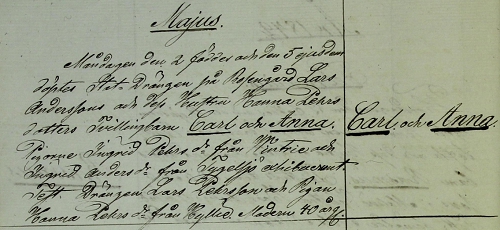 Majus.
Måndagen den 2 föddes och den 5 ejusdem
döptes Stat-Drängen på Rosengård Lars
Anderssons och dess Hustru Hanna Pehrs
dotters Tvillingbarn Carl och Anna.
Pigorne Ingrid Pehrs dr. från Vintrie och
Ingrid Anders dr. från Tygelsjö
Test. Drängen Lars Pehrsson och Pigan
Hanna Pehrs dr. från Hyllie. Modern 40 år g.
Carl och Anna.